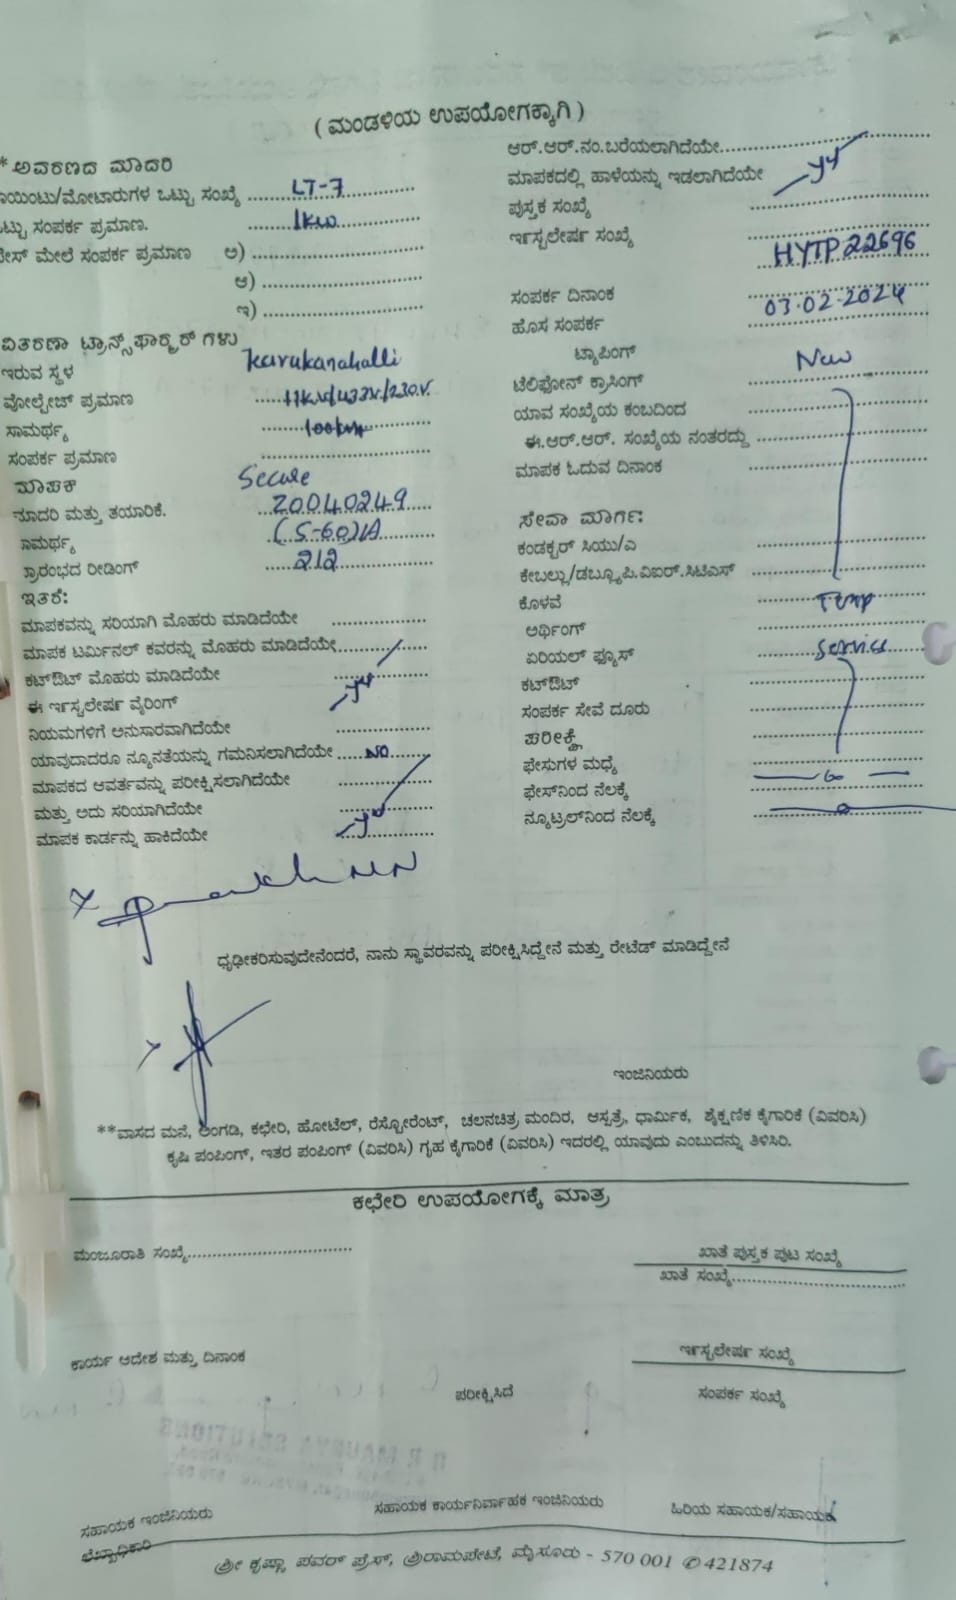 ( ಮಂಡಳಿಯ ಉಪಯೋಗಕ್ಕಾಗಿ )
* ಅವರಣದ ಮಾದರಿ
ಾಯಿಂಟು/ಮೋಟಾರುಗಳ ಒಟ್ಟು ಸಂಖ್ಯೆ LT-7
ಟ್ಟು ಸಂಪರ್ಕ ಪ್ರಮಾಣ. 1kw
ೇಸ್ ಮೇಲೆ ಸಂಪರ್ಕ ಪ್ರಮಾಣ ಅ)
ಆ)
ಇ)
ವಿತರಣಾ ಟ್ರಾನ್ಸ್‌ಫಾರ್‍ಮರ್ ಗಳು
ಇರುವ ಸ್ಥಳ Karukanahalli
ವೋಲ್ಟೇಜ್ ಪ್ರಮಾಣ 11KV/433V/230V.
ಸಾಮರ್ಥ್ಯ 100kva
ಸಂಪರ್ಕ ಪ್ರಮಾಣ
ಮಾಪಕ Secure
ಮಾದರಿ ಮತ್ತು ತಯಾರಿಕೆ. Z0040249
ಾಮರ್ಥ್ಯ (5-60)A
್ರಾರಂಭದ ರೀಡಿಂಗ್ 212
ಇತರೆ:
ಮಾಪಕವನ್ನು ಸರಿಯಾಗಿ ಮೊಹರು ಮಾಡಿದೆಯೇ
ಮಾಪಕ ಟರ್ಮಿನಲ್ ಕವರನ್ನು ಮೊಹರು ಮಾಡಿದೆಯೇ
ಕಟ್‌ಔಟ್ ಮೊಹರು ಮಾಡಿದೆಯೇ
ಈ ಇನ್ಸ್ಟಲೇಷನ್ ವೈರಿಂಗ್
ನಿಯಮಗಳಿಗೆ ಅನುಸಾರವಾಗಿದೆಯೇ
ಯಾವುದಾದರೂ ನ್ಯೂನತೆಯನ್ನು ಗಮನಿಸಲಾಗಿದೆಯೇ NO
ಮಾಪಕದ ಆವರ್ತವನ್ನು ಪರೀಕ್ಷಿಸಲಾಗಿದೆಯೇ
ಮತ್ತು ಅದು ಸರಿಯಾಗಿದೆಯೇ
ಮಾಪಕ ಕಾರ್ಡನ್ನು ಹಾಕಿದೆಯೇ
ಆರ್.ಆರ್.ನಂ.ಬರೆಯಲಾಗಿದೆಯೇ
ಮಾಪಕದಲ್ಲಿ ಹಾಳೆಯನ್ನು ಇಡಲಾಗಿದೆಯೇ
ಪುಸ್ತಕ ಸಂಖ್ಯೆ
ಇನ್ಸ್ಟಲೇಷನ್ ಸಂಖ್ಯೆ HYTP 22696
ಸಂಪರ್ಕ ದಿನಾಂಕ 03-02-2024
ಹೊಸ ಸಂಪರ್ಕ
ಟ್ಯಾಪಿಂಗ್ New
ಟೆಲಿಫೋನ್ ಕ್ರಾಸಿಂಗ್
ಯಾವ ಸಂಖ್ಯೆಯ ಕಂಬದಿಂದ
ಈ.ಆರ್.ಆರ್. ಸಂಖ್ಯೆಯ ನಂತರದ್ದು
ಮಾಪಕ ಓದುವ ದಿನಾಂಕ
ಸೇವಾ ಮಾರ್ಗ:
ಕಂಡಕ್ಟರ್ ಸಿಯು/ಎ
ಕೇಬಲ್ಲು/ಡಬ್ಲ್ಯೂ.ಪಿ.ವಿಐರ್.ಸಿಟಿಎಸ್
ಕೊಳವೆ Temp
ಅರ್ಥಿಂಗ್
ಏರಿಯಲ್ ಫ್ಯೂಸ್ Service
ಕಟ್‌ಔಟ್
ಸಂಪರ್ಕ ಸೇವೆ ದೂರು
ಪರೀಕ್ಷೆ
ಫೇಸುಗಳ ಮಧ್ಯೆ
ಫೇಸ್‌ನಿಂದ ನೆಲಕ್ಕೆ
ನ್ಯೂಟ್ರಲ್‌ನಿಂದ ನೆಲಕ್ಕೆ
ಧೃಢೀಕರಿಸುವುದೇನೆಂದರೆ, ನಾನು ಸ್ಥಾವರವನ್ನು ಪರೀಕ್ಷಿಸಿದ್ದೇನೆ ಮತ್ತು ರೇಟೆಡ್ ಮಾಡಿದ್ದೇನೆ
ಇಂಜಿನಿಯರು
**ವಾಸದ ಮನೆ, ಅಂಗಡಿ, ಕಛೇರಿ, ಹೋಟೆಲ್, ರೆಸ್ಟೋರೆಂಟ್, ಚಲನಚಿತ್ರ ಮಂದಿರ, ಆಸ್ಪತ್ರೆ, ಧಾರ್ಮಿಕ, ಶೈಕ್ಷಣಿಕ ಕೈಗಾರಿಕೆ (ವಿವರಿಸಿ)
ಕೃಷಿ ಪಂಪಿಂಗ್, ಇತರ ಪಂಪಿಂಗ್ (ವಿವರಿಸಿ) ಗೃಹ ಕೈಗಾರಿಕೆ (ವಿವರಿಸಿ) ಇದರಲ್ಲಿ ಯಾವುದು ಎಂಬುದನ್ನು ತಿಳಿಸಿರಿ.
ಕಛೇರಿ ಉಪಯೋಗಕ್ಕೆ ಮಾತ್ರ
ಮಂಜೂರಾತಿ ಸಂಖ್ಯೆ
ಖಾತೆ ಪುಸ್ತಕ ಪುಟ ಸಂಖ್ಯೆ
ಖಾತೆ ಸಂಖ್ಯೆ
ಕಾರ್ಯ ಆದೇಶ ಮತ್ತು ದಿನಾಂಕ
ಇನ್ಸ್ಟಲೇಷನ್ ಸಂಖ್ಯೆ
ಪರೀಕ್ಷಿಸಿದೆ
ಸಂಪರ್ಕ ಸಂಖ್ಯೆ
ಸಹಾಯಕ ಇಂಜಿನಿಯರು
ಸಹಾಯಕ ಕಾರ್ಯನಿರ್ವಾಹಕ ಇಂಜಿನಿಯರು
ಹಿರಿಯ ಸಹಾಯಕ/ಸಹಾಯಕ
ಲೆಖ್ಖಾಧಿಕಾರಿ
ಶ್ರೀ ಕೃಷ್ಣಾ ಪವರ್ ಪ್ರೆಸ್, ಶ್ರೀರಾಮಪೇಟೆ, ಮೈಸೂರು - 570 001 ✆ 421874